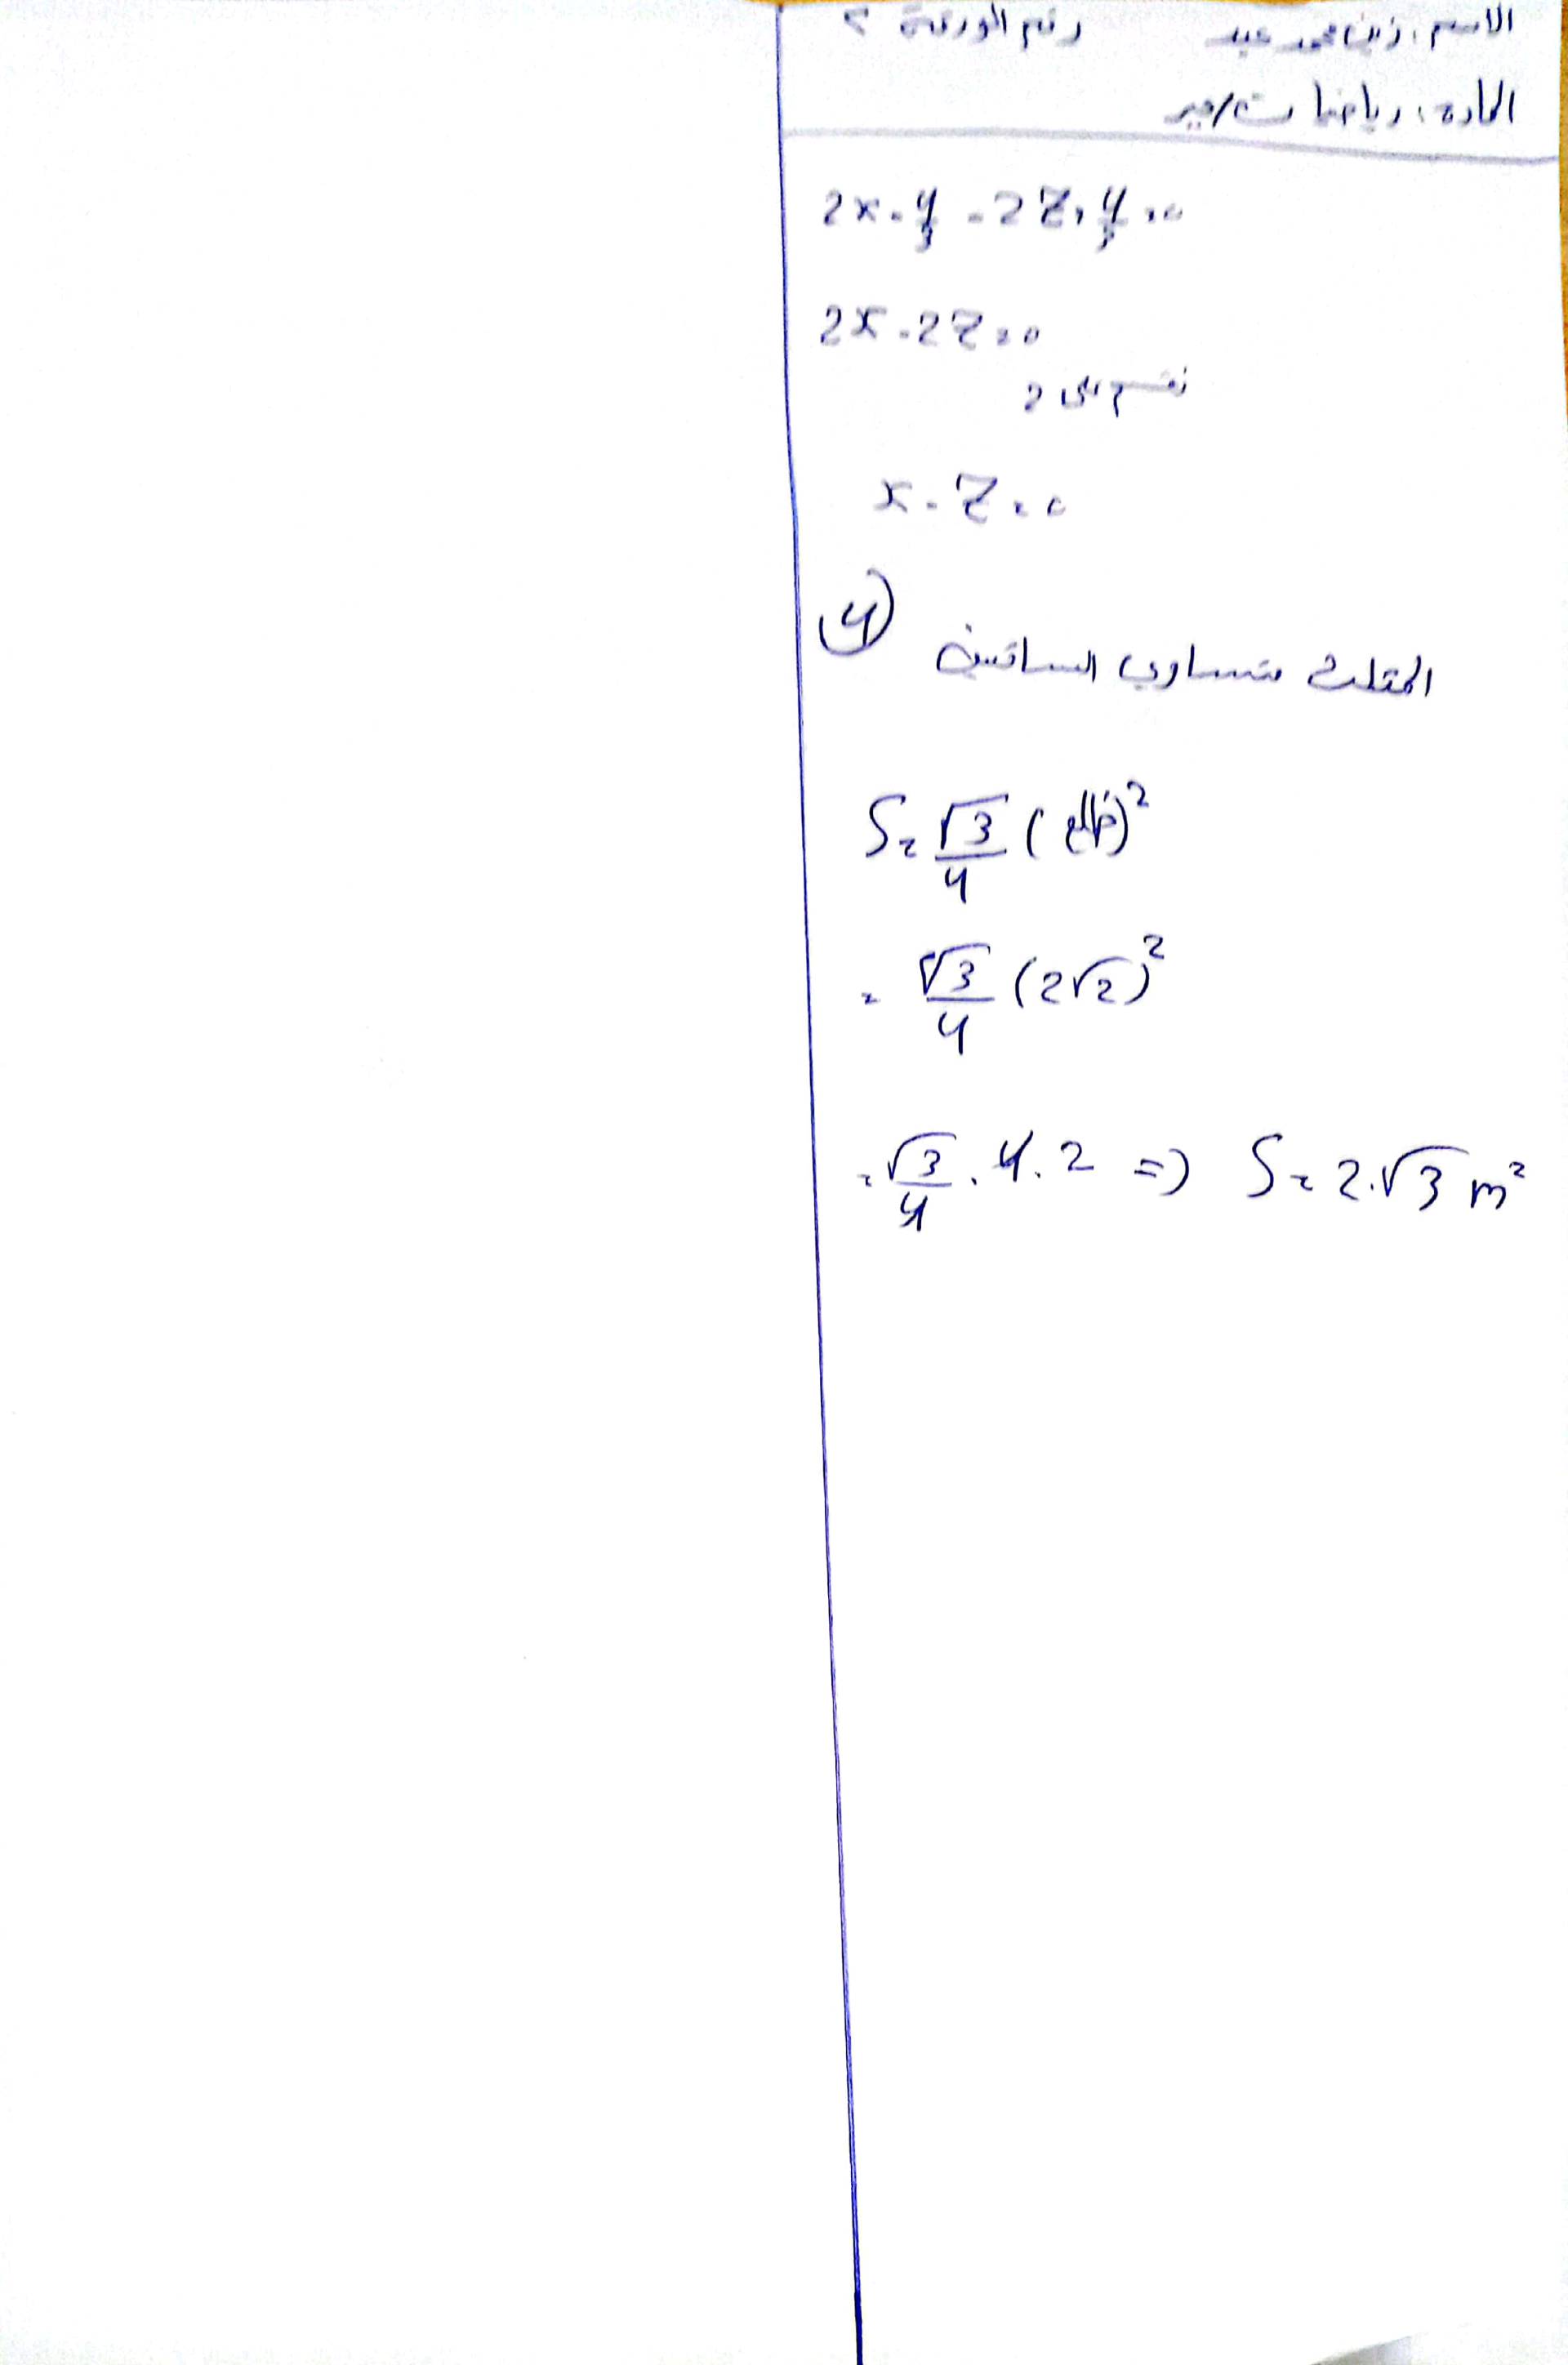 الاسم: زين محمد عبد رقم الورقة 2
المادة: رياضيات / جبر
2x - 4/3 - 2z + 4/3 = 0
2x - 2z = 0
نقسم على 2
x - z = 0
(4)
المثلث متساوي الساقين
S = √3/4 (ضلع)²
= √3/4 (2√2)²
= √3/4 . 4 . 2 => S = 2.√3 m²